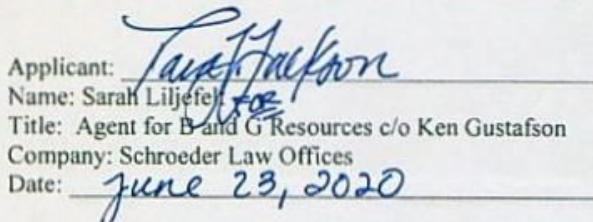 Applicant: Tara J. Jackson
Name: Sarah Liljefelt FOR
Title: Agent for B and G Resources c/o Ken Gustafson
Company: Schroeder Law Offices
Date: June 23, 2020